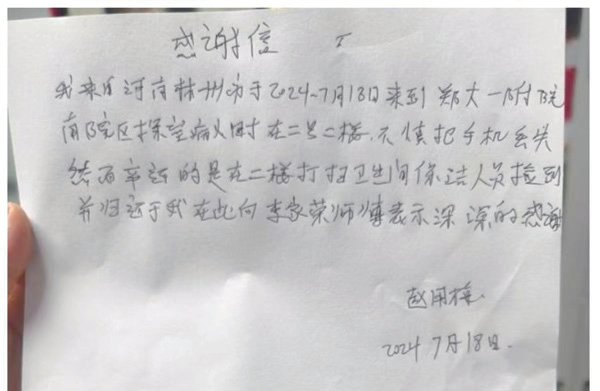 感谢信
我来自河南林州市于2024、7月18日来到郑大一附院
南院区探望病人时在二号二楼、不慎把手机丢失
然而幸运的是在二楼打扫卫生间保洁人员捡到
并归还于我在此向李家荣师傅表示深深的感谢
赵用
2024 7月18日.